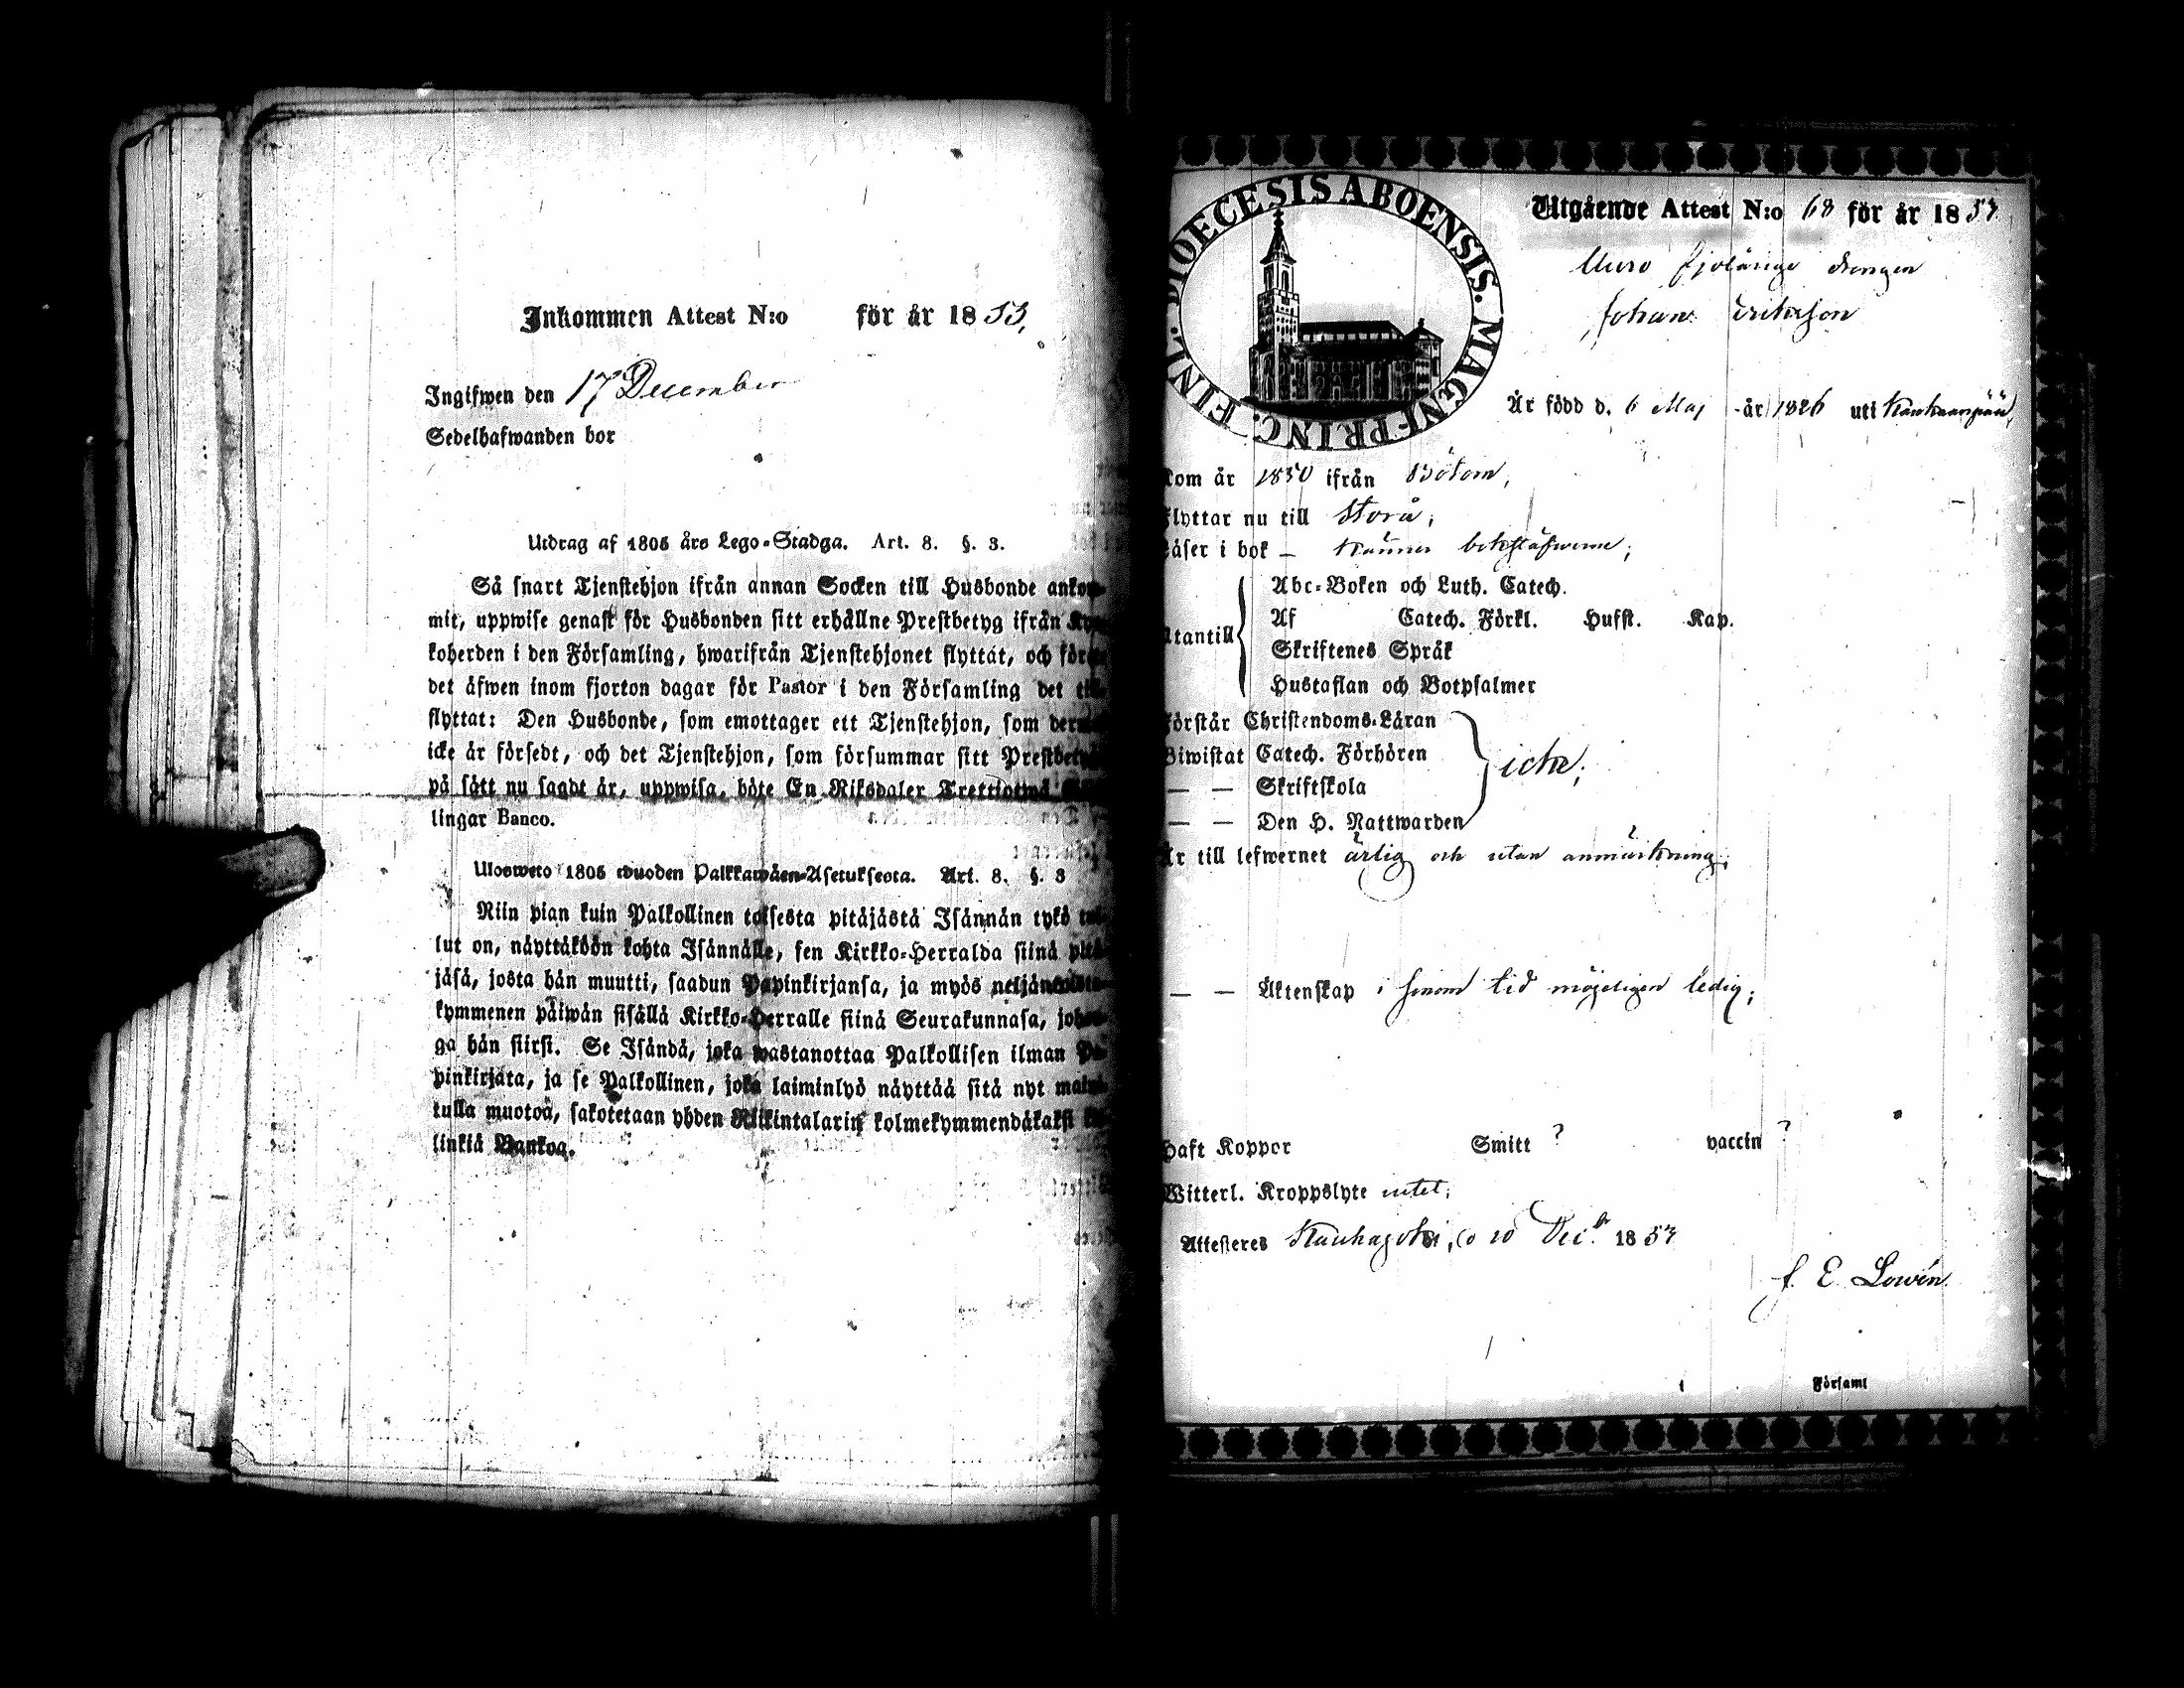 Inkommen Attest N:o för år 1853,
Ingifwen den 17 December
Sedelhafwanden bor
Utdrag af 1805 års Lego-Stadga. Art. 8. §. 3.
Så snart Tjenstehjon ifrån annan Socken till Husbonde
mit, uppwise genast för Husbonden sitt erhållne Prestbetyg ifrån
koherden i den Församling, hwarifrån Tjenstehjonet flyttat, och
det äfwen inom fjorton dagar för Pastor i den Församling det
flyttat: Den Husbonde, som emottager ett Tjenstehjon, som
icke är försedt, och det Tjenstehjon, som försummar sitt
på sätt nu sagdt är, uppwisa, böte En Riksdaler Trettiotwå
lingar Banco.
Ulosweto 1805 wuoden Palkkawäen-Asetuksesta. Art. 8. §. 3
Niin pian kuin Palkollinen toisesta pitäjästä Isännän tykö
lut on, näyttäköön kohta Isännälle, sen Kirkko-Herralda siinä
jäsä, josta hän muutti, saadun Papinkirjansa, ja myös
kymmenen päiwän sisällä Kirkko-Herralle siinä Seurakunnasa,
ga hän siirsi. Se Isändä, joka wastanottaa Palkollisen ilman
pinkirjata, ja se Palkollinen, joka laiminlyö näyttää sitä nyt
tulla muotoa, sakotetaan yhden Riikintalarin kolmekymmendäkaksi
linkiä Bankoa.
DIOECESIS ABOENSIS. MAGNI PRINC. FINL.
Utgående Attest N:o 68 för år 1853
drengen
Johan Eriksson
Är född d. 6 Maj år 1826 uti Kankaanpää,
kom år 1850 ifrån Bötom,
flyttar nu till Storå;
Läser i bok – känner bokstäfwerne;
Abc-Boken och Luth. Catech.
Af Catech. Förkl. Hufst. Kap.
Utantill
Skriftenes Språk
Hustaflan och Botpsalmer
Förstår Christendoms-Läran
Biwistat Catech. Förhören
icke;
— — Skriftskola
— — Den H. Nattwarden
Är till lefwernet ärlig och utan anmärkning;
— — Äktenskap i sinom tid möjeligen ledig;
Haft Koppor Smitt ? vaccin ?
Witterl. Kroppslyte intet;
Attesteres Kauhajoki, d 10 Dec:br 1853
F. E. Lowén.
Församl